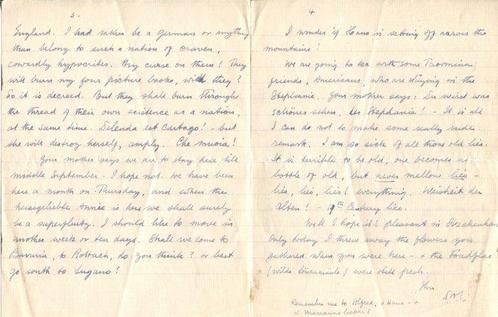 3.
England. I had rather be a German or anything
than belong to such a nation of craven,
cowardly hypocrites. My curse on them! They
will burn my four picture books, will they?
So it is decreed. But they shall burn through
the thread of their own existence as a nation,
at the same time. Delenda est Cartago! - but
she will destroy herself, amply. Che nuoia!
Your mother says we are to stay here till
middle September. I hope not. We have been
here a month on Thursday, and when the
Annie is here we shall surely
be a superfluity. I should like to move in
another week or ten days. Shall we come to
Bavaria, to Rotwand, do you think? or best
go south to Lugano?
4
I wonder if Hans is setting off across the
mountains!
We are going to tea with some Taormina
friends, Americans, who are staying in the
Stephanie. Your mother says: Sie weird was
schönes sehen, das Stephania! - It is all
I can do not to make some really rude
remark. I am so sick of all those old lies.
It is terrible to be old, one becomes a
bottle of old, but never mellow lies -
lies, lies, lies! everything. Weisheit der
alten! - 19th Century lies.
Well I hope it's pleasant in
Only today I threw away the flowers you
gathered when you were here - & the
(wilde ) were still fresh.
Yrs
D.H.L.
Remember me to Alfred, & Hans - &